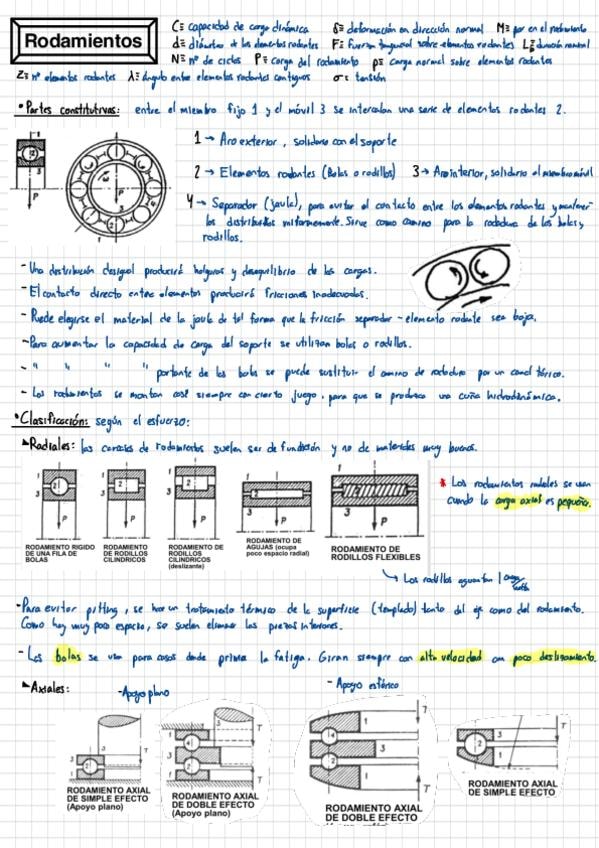 Rodamientos
C≡ capacidad de carga dinámica δ≡ deformación en dirección normal M≡ par en el rodamiento
d≡ diámetro de los elementos rodantes F≡ fuerza tangencial sobre elementos rodantes L≡ duración nominal
N≡ nº de ciclos P≡ carga del rodamiento p≡ carga normal sobre elementos rodantes
Z≡ nº elementos rodantes λ≡ ángulo entre elementos rodantes contiguos σ≡ tensión
• Partes constitutivas: entre el miembro fijo 1 y el móvil 3 se intercalan una serie de elementos rodantes 2.
1 → Aro exterior, solidario con el soporte
2 → Elementos rodantes (Bolas o rodillos) 3 → Aro interior, solidario al miembro móvil
4 → Separador (jaula), para evitar el contacto entre los elementos rodantes y mantener-
los distribuidos uniformemente. Sirve como camino para la rodadura de las bolas y
rodillos.
- Una distribución desigual producirá holguras y desequilibrio de las cargas.
- El contacto directo entre elementos producirá fricciones inadecuadas.
- Puede elegirse el material de la jaula de tal forma que la fricción separador - elemento rodante sea baja.
- Para aumentar la capacidad de carga del soporte se utilizan bolas o rodillos.
- " " " " portante de las bolas se puede sustituir el camino de rodadura por un canal tórico.
- Los rodamientos se montan casi siempre con cierto juego, para que se produzca una cuña hidrodinámica.
• Clasificación: según el esfuerzo:
Radiales: las carcasas de rodamientos suelen ser de fundición y no de materiales muy buenos.
RODAMIENTO RIGIDO DE UNA FILA DE BOLAS
RODAMIENTO DE RODILLOS CILINDRICOS
RODAMIENTO DE RODILLOS CILINDRICOS (deslizante)
RODAMIENTO DE AGUJAS (ocupa poco espacio radial)
RODAMIENTO DE RODILLOS FLEXIBLES
* Los rodamientos radiales se usan
cuando la carga axial es pequeña.
Los rodillos aguantan carga
- Para evitar pitting, se hace un tratamiento térmico de la superficie (templado) tanto del eje como del rodamiento.
Como hay muy poco espacio, se suelen eliminar las piezas interiores.
- Las bolas se usan para casos donde prima la fatiga. Giran siempre con alta velocidad con poco deslizamiento.
Axiales: - Apoyo plano - Apoyo esférico
RODAMIENTO AXIAL DE SIMPLE EFECTO (Apoyo plano)
RODAMIENTO AXIAL DE DOBLE EFECTO (Apoyo plano)
RODAMIENTO AXIAL DE DOBLE EFECTO
RODAMIENTO AXIAL DE SIMPLE EFECTO